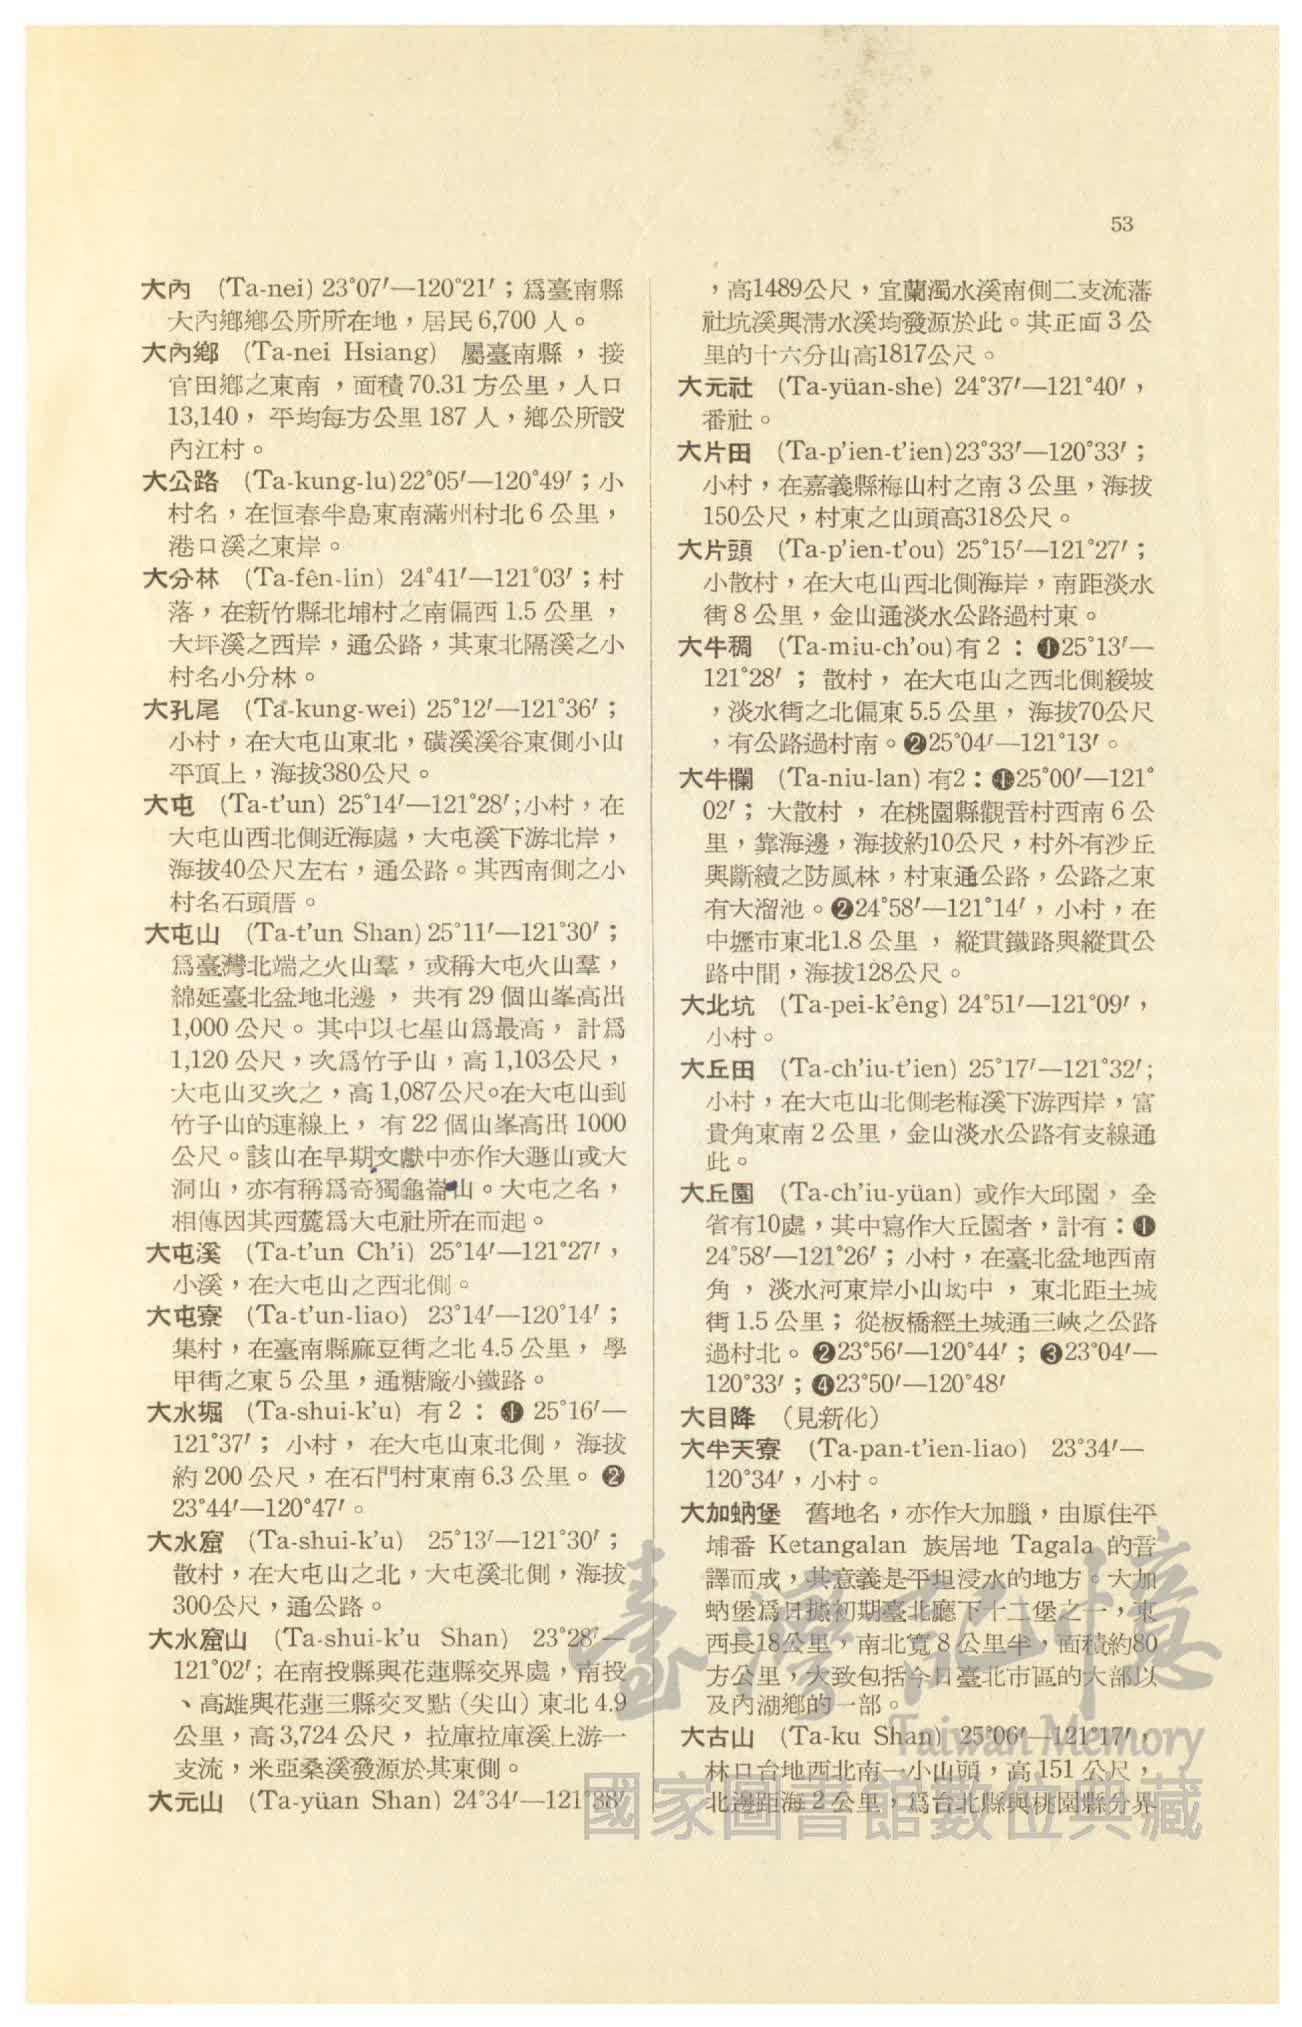 53
大內　(Ta-nei) 23°07′—120°21′；爲臺南縣
大內鄉鄉公所所在地，居民6,700 人。
大內鄉　(Ta-nei Hsiang)　屬臺南縣，接
官田鄉之東南，面積70.31 方公里，人口
13,140，平均每方公里 187 人，鄉公所設
內江村。
大公路　(Ta-kung-lu)22°05′—120°49′；小
村名，在恒春半島東南滿州村北6 公里，
港口溪之東岸。
大分林　(Ta-fên-lin) 24°41′—121°03′；村
落，在新竹縣北埔村之南偏西 1.5 公里，
大坪溪之西岸，通公路，其東北隔溪之小
村名小分林。
大孔尾　(Ta-kung-wei) 25°12′—121°36′；
小村，在大屯山東北，磺溪溪谷東側小山
平頂上，海拔380公尺。
大屯　(Ta-t'un) 25°14′—121°28′;小村，在
大屯山西北側近海處，大屯溪下游北岸，
海拔40公尺左右，通公路。其西南側之小
村名石頭厝。
大屯山　(Ta-t'un Shan) 25°11′—121°30′；
爲臺灣北端之火山羣，或稱大屯火山羣，
綿延臺北盆地北邊，共有 29 個山峯高出
1,000 公尺。其中以七星山爲最高，計爲
1,120 公尺，次爲竹子山，高 1,103公尺，
大屯山又次之，高 1,087公尺。在大屯山到
竹子山的連線上，有 22 個山峯高出 1000
公尺。該山在早期文獻中亦作大遯山或大
洞山，亦有稱爲奇獨龜崙山。大屯之名，
相傳因其西麓爲大屯社所在而起。
大屯溪　(Ta-t'un Ch'i) 25°14′—121°27′，
小溪，在大屯山之西北側。
大屯寮　(Ta-t'un-liao) 23°14′—120°14′；
集村，在臺南縣麻豆街之北 4.5 公里，學
甲街之東 5 公里，通糖廠小鐵路。
大水堀　(Ta-shui-k'u) 有 2：❶ 25°16′—
121°37′；小村，在大屯山東北側，海拔
約 200 公尺，在石門村東南 6.3 公里。❷
23°44′—120°47′。
大水窟　(Ta-shui-k'u) 25°13′—121°30′；
散村，在大屯山之北，大屯溪北側，海拔
300公尺，通公路。
大水窟山　(Ta-shui-k'u Shan) 23°28′—
121°02′; 在南投縣與花蓮縣交界處，南投
、高雄與花蓮三縣交叉點（尖山）東北 4.9
公里，高 3,724 公尺，拉庫拉庫溪上游一
支流，米亞桑溪發源於其東側。
大元山　(Ta-yüan Shan) 24°34′—121°38′
，高1489公尺，宜蘭濁水溪南側二支流藩
社坑溪與清水溪均發源於此。其正面 3 公
里的十六分山高1817公尺。
大元社　(Ta-yüan-she) 24°37′—121°40′，
番社。
大片田　(Ta-p'ien-t'ien)23°33′—120°33′；
小村，在嘉義縣梅山村之南 3 公里，海拔
150公尺，村東之山頭高318公尺。
大片頭　(Ta-p'ien-t'ou) 25°15′—121°27′；
小散村，在大屯山西北側海岸，南距淡水
街 8 公里，金山通淡水公路過村東。
大牛稠　(Ta-miu-ch'ou)有 2：❶25°13′—
121°28′；散村，在大屯山之西北側緩坡
，淡水街之北偏東 5.5 公里，海拔70公尺
，有公路過村南。❷25°04′—121°13′。
大牛欄　(Ta-niu-lan) 有2：❶25°00′—121°
02′；大散村，在桃園縣觀音村西南 6 公
里，靠海邊，海拔約10公尺，村外有沙丘
與斷續之防風林，村東通公路，公路之東
有大溜池。❷24°58′—121°14′，小村，在
中壢市東北1.8 公里，縱貫鐵路與縱貫公
路中間，海拔128公尺。
大北坑　(Ta-pei-k'êng) 24°51′—121°09′，
小村。
大丘田　(Ta-ch'iu-t'ien) 25°17′—121°32′;
小村，在大屯山北側老梅溪下游西岸，富
貴角東南 2 公里，金山淡水公路有支線通
此。
大丘園　(Ta-ch'iu-yüan) 或作大邱園，全
省有10處，其中寫作大丘園者，計有：❶
24°58′—121°26′；小村，在臺北盆地西南
角，淡水河東岸小山坳中，東北距土城
街 1.5 公里；從板橋經土城通三峽之公路
過村北。❷23°56′—120°44′；❸23°04′—
120°33′；❹23°50′—120°48′
大目降　（見新化）
大半天寮　(Ta-pan-t'ien-liao) 23°34′—
120°34′，小村。
大加蚋堡　舊地名，亦作大加臘，由原住平
埔番 Ketangalan 族居地 Tagala 的音
譯而成，其意義是平坦浸水的地方。大加
蚋堡爲日據初期臺北廳下十二堡之一，東
西長18公里，南北寬 8 公里半，面積約80
方公里，大致包括今日臺北市區的大部以
及內湖鄉的一部。
大古山　(Ta-ku Shan) 25°06′—121°17′，
林口台地西北南一小山頭，高 151 公尺，
北邊距海 2 公里，爲台北縣與桃園縣分界
臺灣記憶
Taiwan Memory
國家圖書館數位典藏